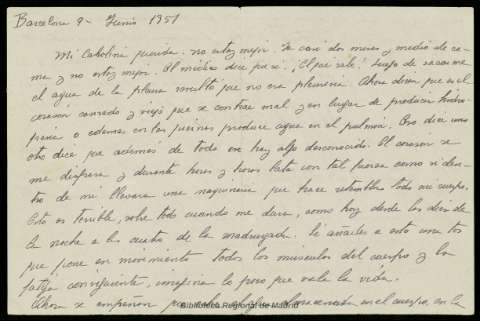 Barcelona 9 - Junio 1951
Mi Carolina querida: no estoy mejor. Ya casi dos meses y medio de ca-
ma y no estoy mejor. El médico dice que sí. ¡El que sabe! Luego de sacarme
el agua de la pleura resultó que no era pleuresía. Ahora dicen que es el
corazón cansado y viejo que se contrae mal y en lugar de producir hidro-
pesía o edema en las piernas produce agua en el pulmón. Eso dice uno
otro dice que además de todo eso hay algo desconocido. El corazón se
me dispara y durante horas y horas late con tal fuerza como si den-
tro de mí llevara una maquinaria que hace retemblar todo mi cuerpo.
Esto es terrible, sobre todo cuando me dura, como hoy desde las diez de
la noche a las cuatro de la madrugada. Le añades a esto una tos
que pone en movimiento todos los músculos del cuerpo y la
fatiga consiguiente, imagina lo poco que vale la vida.
Ahora se empeñan en el cuerpo, en la
Biblioteca Regional de Madrid